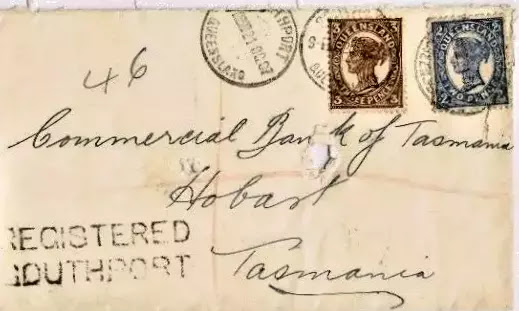 SOUTHPORT
QUEENSLAND
QUEENSLAND
THREE PENCE
3 3
QUEENSLAND
TWO PENCE
2 2
46
Commercial Bank of Tasmania
Hobart
Tasmania
REGISTERED
SOUTHPORT